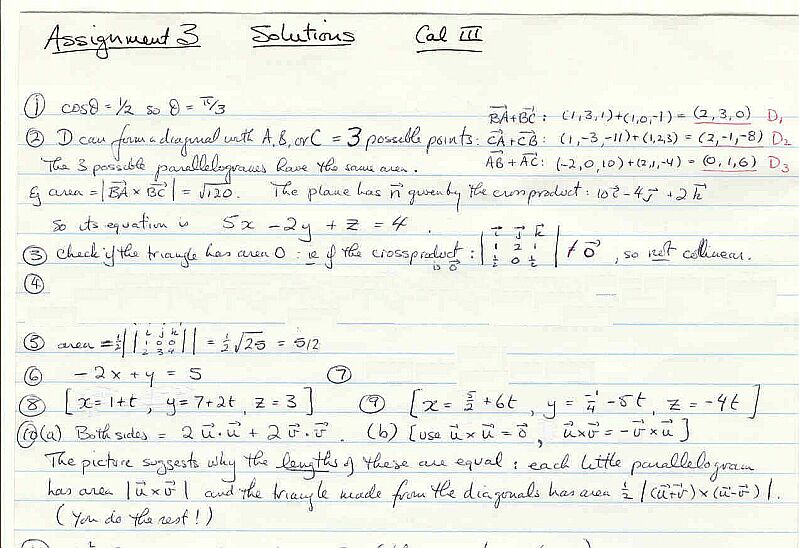 Assignment 3 Solutions Cal III
① cosθ = 1/2 so θ = π/3
BA+BC : (1,3,1)+(1,0,-1) = (2,3,0) D₁
② D can form a diagonal with A, B, or C = 3 possible points: CA+CB : (1,-3,-11)+(1,2,3) = (2,-1,-8) D₂
The 3 possible parallelograms have the same area. AB+AC: (-2,0,10)+(2,1,-4) = (0,1,6) D₃
Eg area = |BA × BC| = √120. The plane has n given by the crossproduct: 10i - 4j + 2k
So its equation is 5x - 2y + z = 4.
③ Check if the triangle has area 0 : ie if the crossproduct is 0 : | i j k ; 1 2 1 ; 1/2 0 1/2 | ≠ 0, so not collinear.
④
⑤ area = 1/2 || i j k ; 1 0 0 ; 2 3 4 || = 1/2 √25 = 5/2
⑥ -2x + y = 5 ⑦
⑧ [x = 1+t, y = 7+2t, z = 3] ⑨ [x = 5/2 + 6t, y = -1/4 - 5t, z = -4t]
⑩(a) Both sides = 2 u·u + 2 v·v. (b) [use u×u = 0, u×v = -v×u]
The picture suggests why the lengths of these are equal : each little parallelogram
has area |u×v| and the triangle made from the diagonals has area 1/2 |(u+v)×(u-v)|.
(You do the rest!)